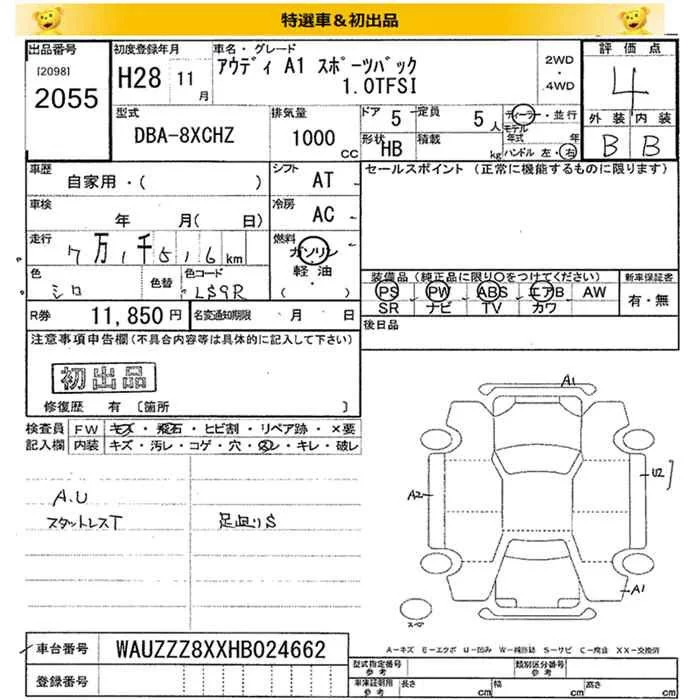 特選車＆初出品
出品番号 初度登録年月 車名・グレード 2WD・4WD 評価点
[2098] 2055 H28 11月 アウディ A1 スポーツバック 1.0TFSI 4
型式 排気量 ドア 5 定員 5人 ディーラー・並行 外装 内装
DBA-8XCHZ 1000CC 形状 HB 積載 kg モデル年式 年 ハンドル 左・右 B B
車歴 シフト セールスポイント（正常に機能するものに限ります）
自家用・( ) AT
車検 年 月( 日) 冷房 AC
走行 7万1千516km 燃料 ガソリン・軽油 ( )
色 シロ 色替 色コード LS9R
装備品（純正品に限り○をつけてください） 新車保証書
PS PW ABS エアB AW 有・無
SR ナビ TV カワ
R券 11,850円 名変通知期限 月 日 後日品
注意事項申告欄（不具合内容等は具体的に記入して下さい）
初出品
修復歴 有 〔箇所 〕
検査員 FW キズ・飛石・ヒビ割・リペア跡・×要
記入欄 内装 キズ・汚レ・コゲ・穴・スレ・キレ・破レ
A.U
スタットレスT 足廻りS
A1
A2
U2
A1
スペア
A-キズ E-エクボ U-凹み W-補修跡 S-サビ C-腐食 XX-交換済
車台番号 WAUZZZ8XXHB024662 型式指定番号 参考 類別区分番号 参考
登録番号 車庫証明用 参考 長さ cm 幅 cm 高さ cm